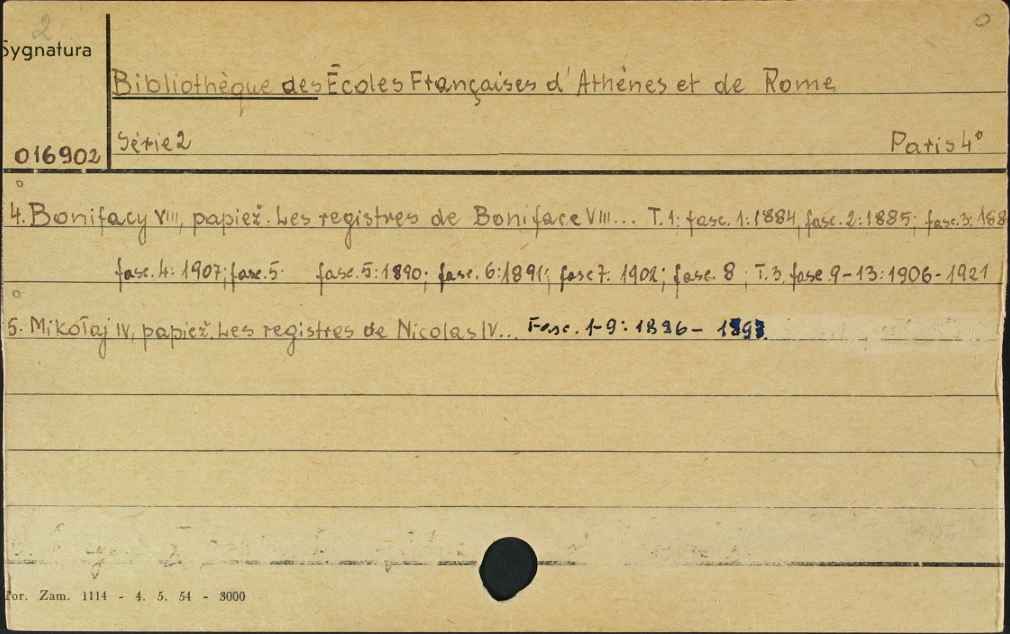 2
0
Sygnatura
Bibliothèque des Écoles Françaises d'Athénes et de Rome
016902
Série 2 Paris 4°
4. Bonifacy VIII, papież. Les registres de Boniface VIII... T.1: fasc. 1:1884, fasc. 2:1885; fasc. 3: 188
fasc. 4: 1907; fasc. 5. fasc. 5:1890; fasc. 6:1891; fasc 7. 1902; fasc. 8; T. 3. fasc 9-13:1906-1921
5. Mikołaj IV, papież. Les registres de Nicolas IV... Fasc. 1-9: 1886-
for. Zam. 1114 - 4. 5. 54 - 3000